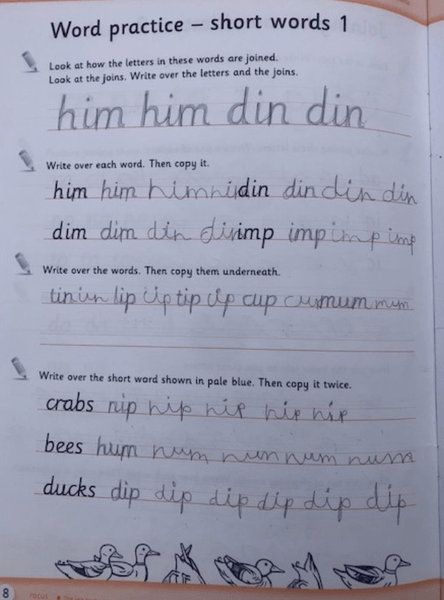 Word practice – short words 1
Look at how the letters in these words are joined.
Look at the joins. Write over the letters and the joins.
him him din din
Write over each word. Then copy it.
him him him din din din din
dim dim din din imp imp imp imp
Write over the words. Then copy them underneath.
tin lip lip tip cup mum mum
Write over the short word shown in pale blue. Then copy it twice.
crabs nip nip nip nip nip
bees hum num nun num num
ducks dip dip dip dip dip dip
8 FOCUS